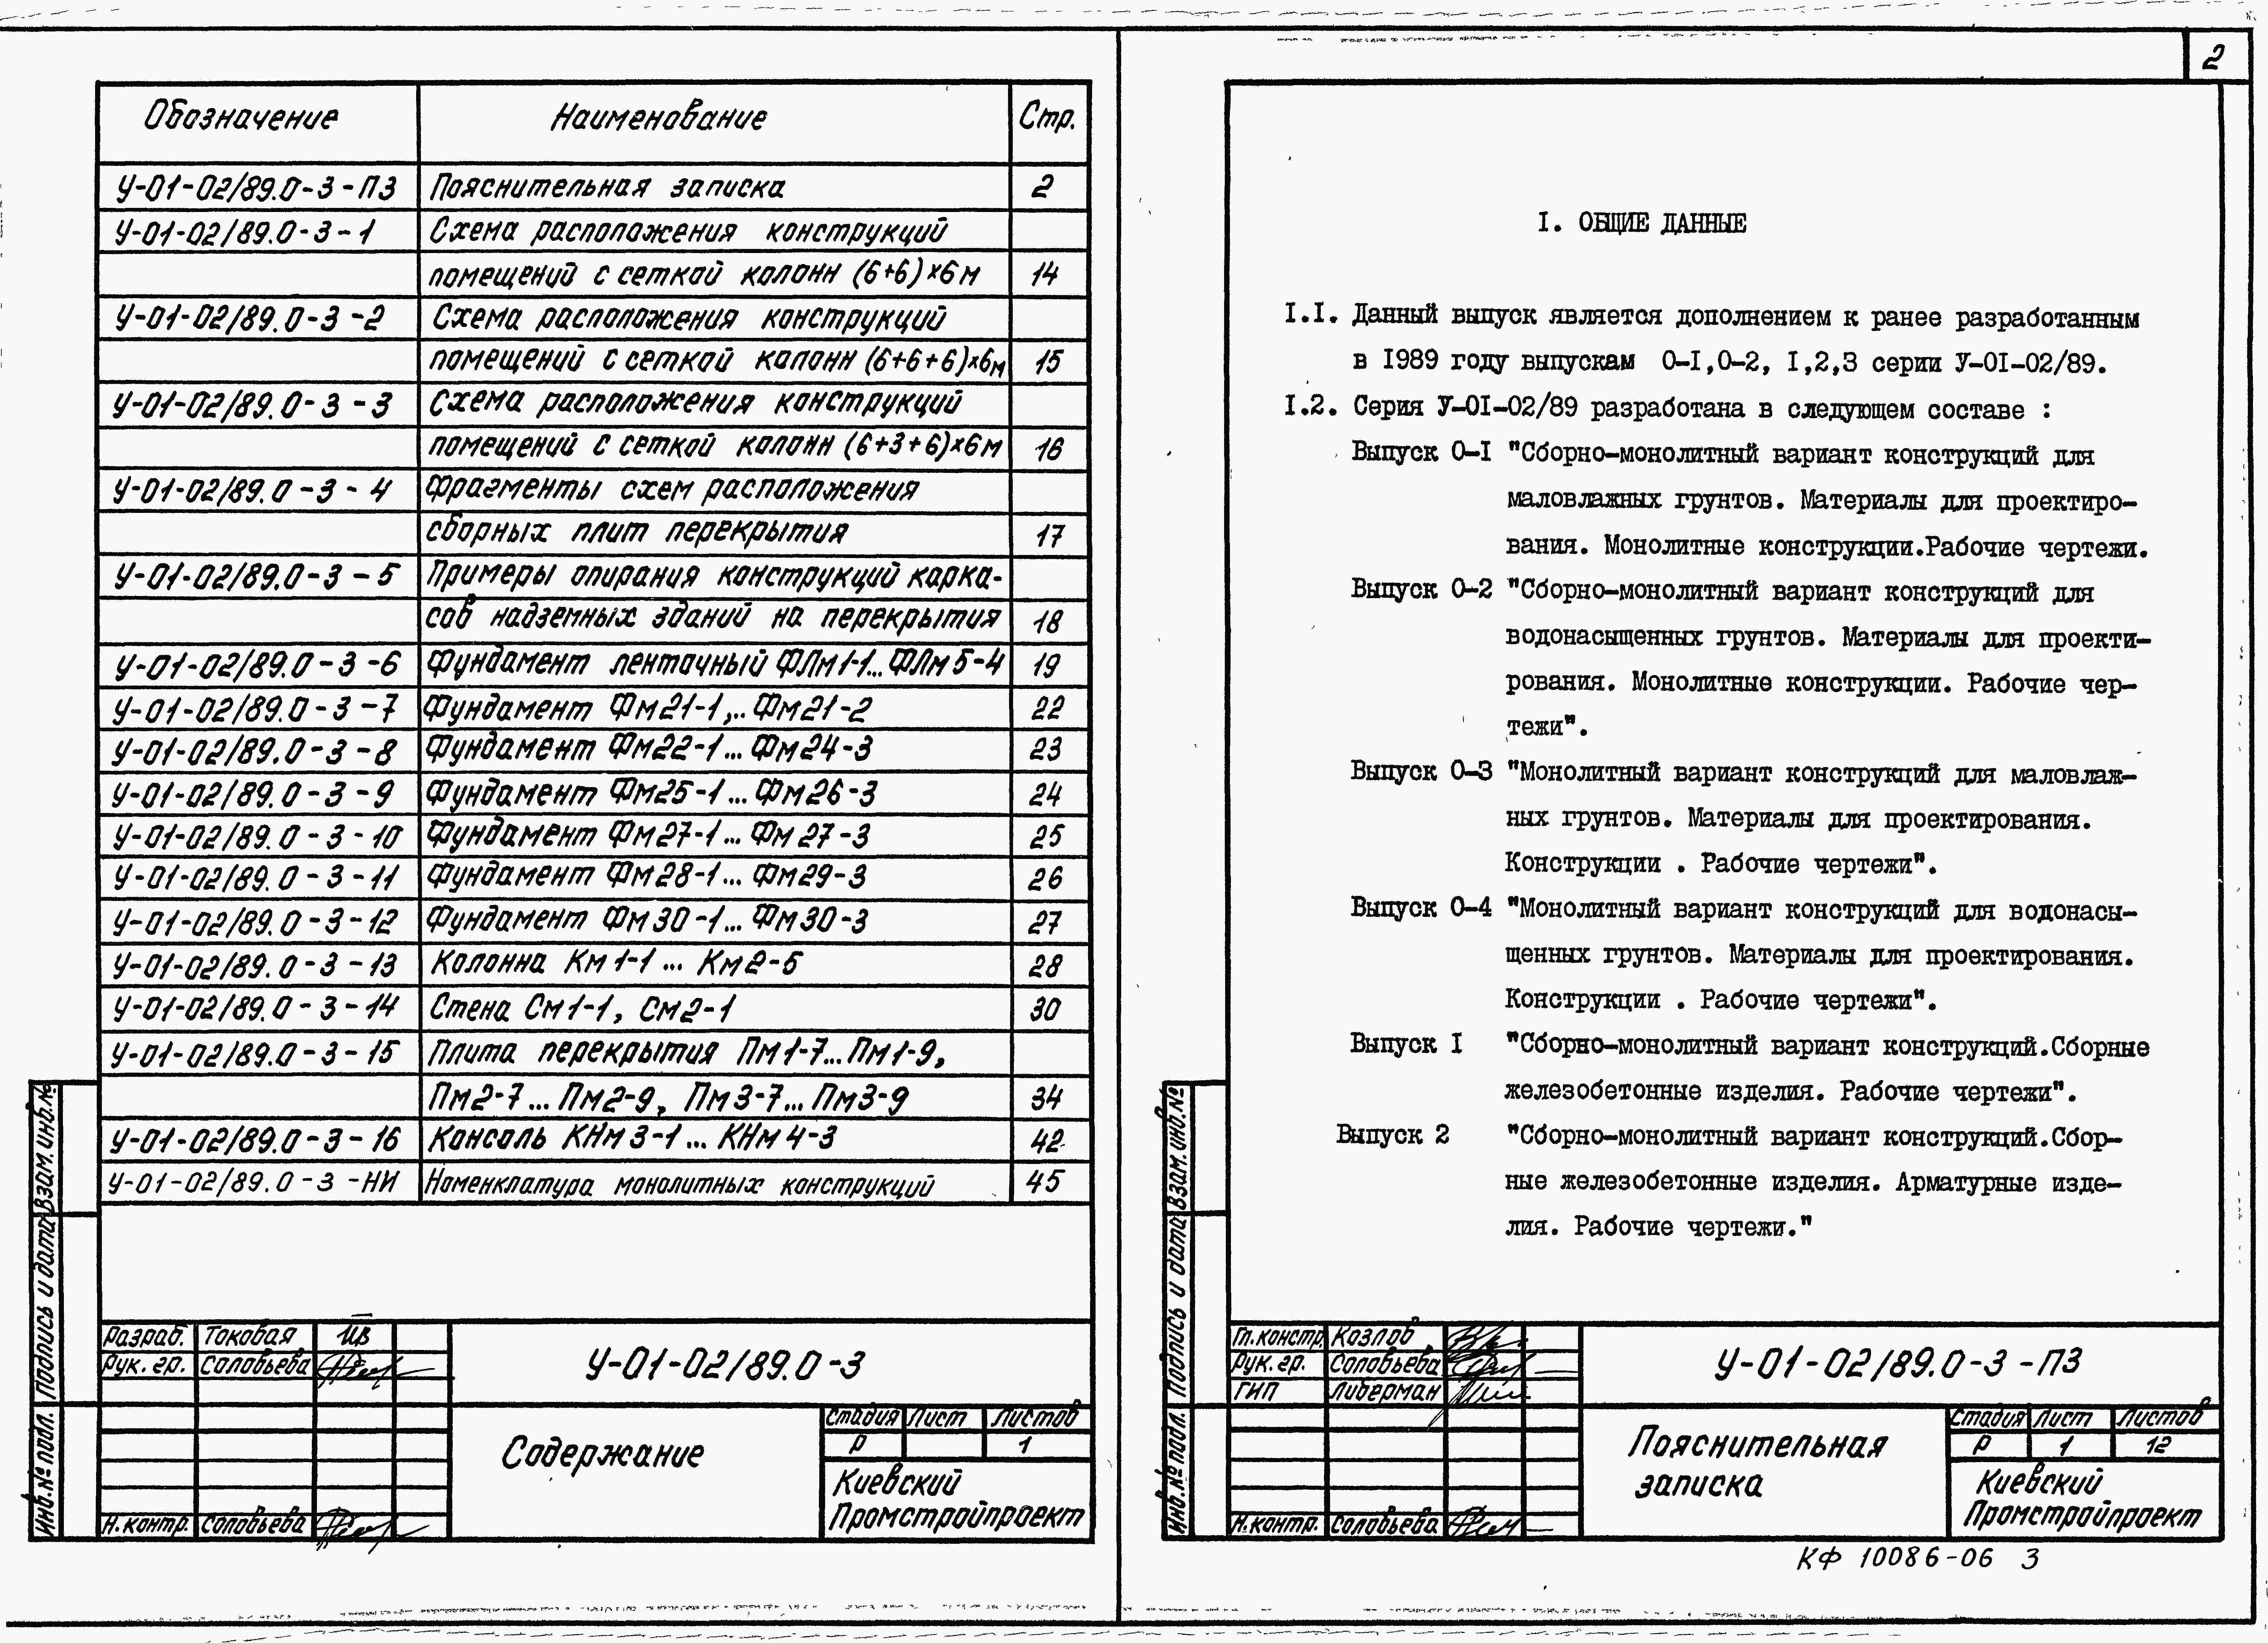 Обозначение Наименование Стр.
У-01-02/89.0-3-ПЗ Пояснительная записка 2
У-01-02/89.0-3-1 Схема расположения конструкций
помещений с сеткой колонн (6+6)×6м 14
У-01-02/89.0-3-2 Схема расположения конструкций
помещений с сеткой колонн (6+6+6)×6м 15
У-01-02/89.0-3-3 Схема расположения конструкций
помещений с сеткой колонн (6+3+6)×6м 16
У-01-02/89.0-3-4 Фрагменты схем расположения
сборных плит перекрытия 17
У-01-02/89.0-3-5 Примеры опирания конструкций карка-
сов надземных зданий на перекрытия 18
У-01-02/89.0-3-6 Фундамент ленточный ФЛм1-1...ФЛм5-4 19
У-01-02/89.0-3-7 Фундамент Фм21-1,.. Фм21-2 22
У-01-02/89.0-3-8 Фундамент Фм22-1... Фм24-3 23
У-01-02/89.0-3-9 Фундамент Фм25-1... Фм26-3 24
У-01-02/89.0-3-10 Фундамент Фм27-1... Фм27-3 25
У-01-02/89.0-3-11 Фундамент Фм28-1... Фм29-3 26
У-01-02/89.0-3-12 Фундамент Фм30-1... Фм30-3 27
У-01-02/89.0-3-13 Колонна Км1-1... Км2-5 28
У-01-02/89.0-3-14 Стена См1-1, См2-1 30
У-01-02/89.0-3-15 Плита перекрытия Пм1-7...Пм1-9,
Пм2-7... Пм2-9, Пм3-7... Пм3-9 34
У-01-02/89.0-3-16 Консоль КНм3-1... КНм4-3 42
У-01-02/89.0-3-НИ Номенклатура монолитных конструкций 45
Взам. инв.№
Подпись и дата
Инв.№ подл.
Разраб. Токовая
Рук. гр. Соловьева
Н.контр. Соловьева
У-01-02/89.0-3
Содержание
Стадия Лист Листов
Р 1
Киевский
Промстройпроект
2
I. ОБЩИЕ ДАННЫЕ
I.I. Данный выпуск является дополнением к ранее разработанным
в I989 году выпускам 0-I,0-2, I,2,3 серии У-0I-02/89.
I.2. Серия У-0I-02/89 разработана в следующем составе :
Выпуск 0-I "Сборно-монолитный вариант конструкций для
маловлажных грунтов. Материалы для проектиро-
вания. Монолитные конструкции.Рабочие чертежи.
Выпуск 0-2 "Сборно-монолитный вариант конструкций для
водонасыщенных грунтов. Материалы для проекти-
рования. Монолитные конструкции. Рабочие чер-
тежи".
Выпуск 0-3 "Монолитный вариант конструкций для маловлаж-
ных грунтов. Материалы для проектирования.
Конструкции . Рабочие чертежи".
Выпуск 0-4 "Монолитный вариант конструкций для водонасы-
щенных грунтов. Материалы для проектирования.
Конструкции . Рабочие чертежи".
Выпуск I "Сборно-монолитный вариант конструкций.Сборные
железобетонные изделия. Рабочие чертежи".
Выпуск 2 "Сборно-монолитный вариант конструкций.Сбор-
ные железобетонные изделия. Арматурные изде-
лия. Рабочие чертежи."
Взам. инв.№
Подпись и дата
Инв.№ подл.
Гл.констр. Козлов
Рук. гр. Соловьева
ГИП Либерман
Н.контр. Соловьева
У-01-02/89.0-3-ПЗ
Пояснительная
записка
Стадия Лист Листов
Р 1 12
Киевский
Промстройпроект
КФ 10086-06 3